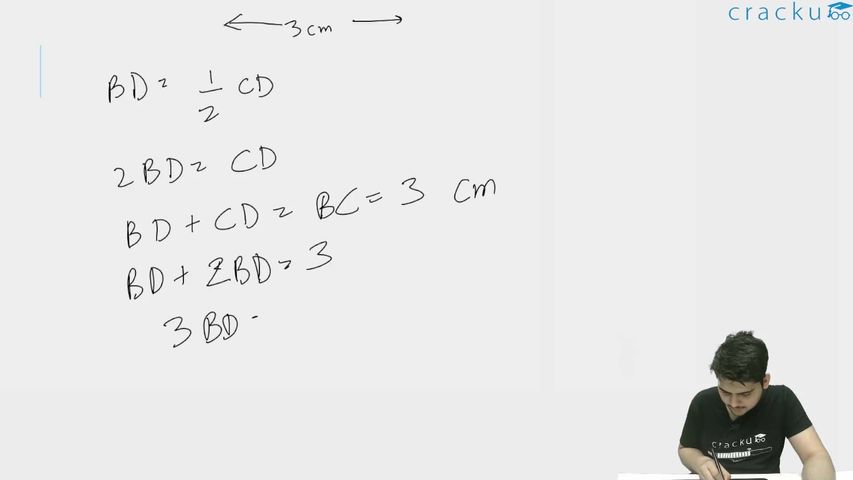 cracku
3 cm
BD = 1/2 CD
2BD = CD
BD + CD = BC = 3 cm
BD + 2BD = 3
3 BD -
cracku